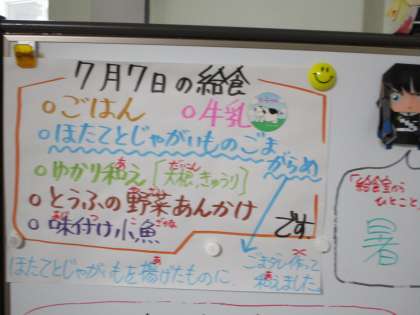 7月7日の給食
○ごはん ○牛乳
○ほたてとじゃがいものごま
がらめ
○ゆかり和え〔大根、きゅうり〕
○とうふの野菜あんかけ
○味付け小魚
です
ほたてとじゃがいもを揚げたものに
ごまダレ作って
和えました。
「給食室から
ひとこと」
暑